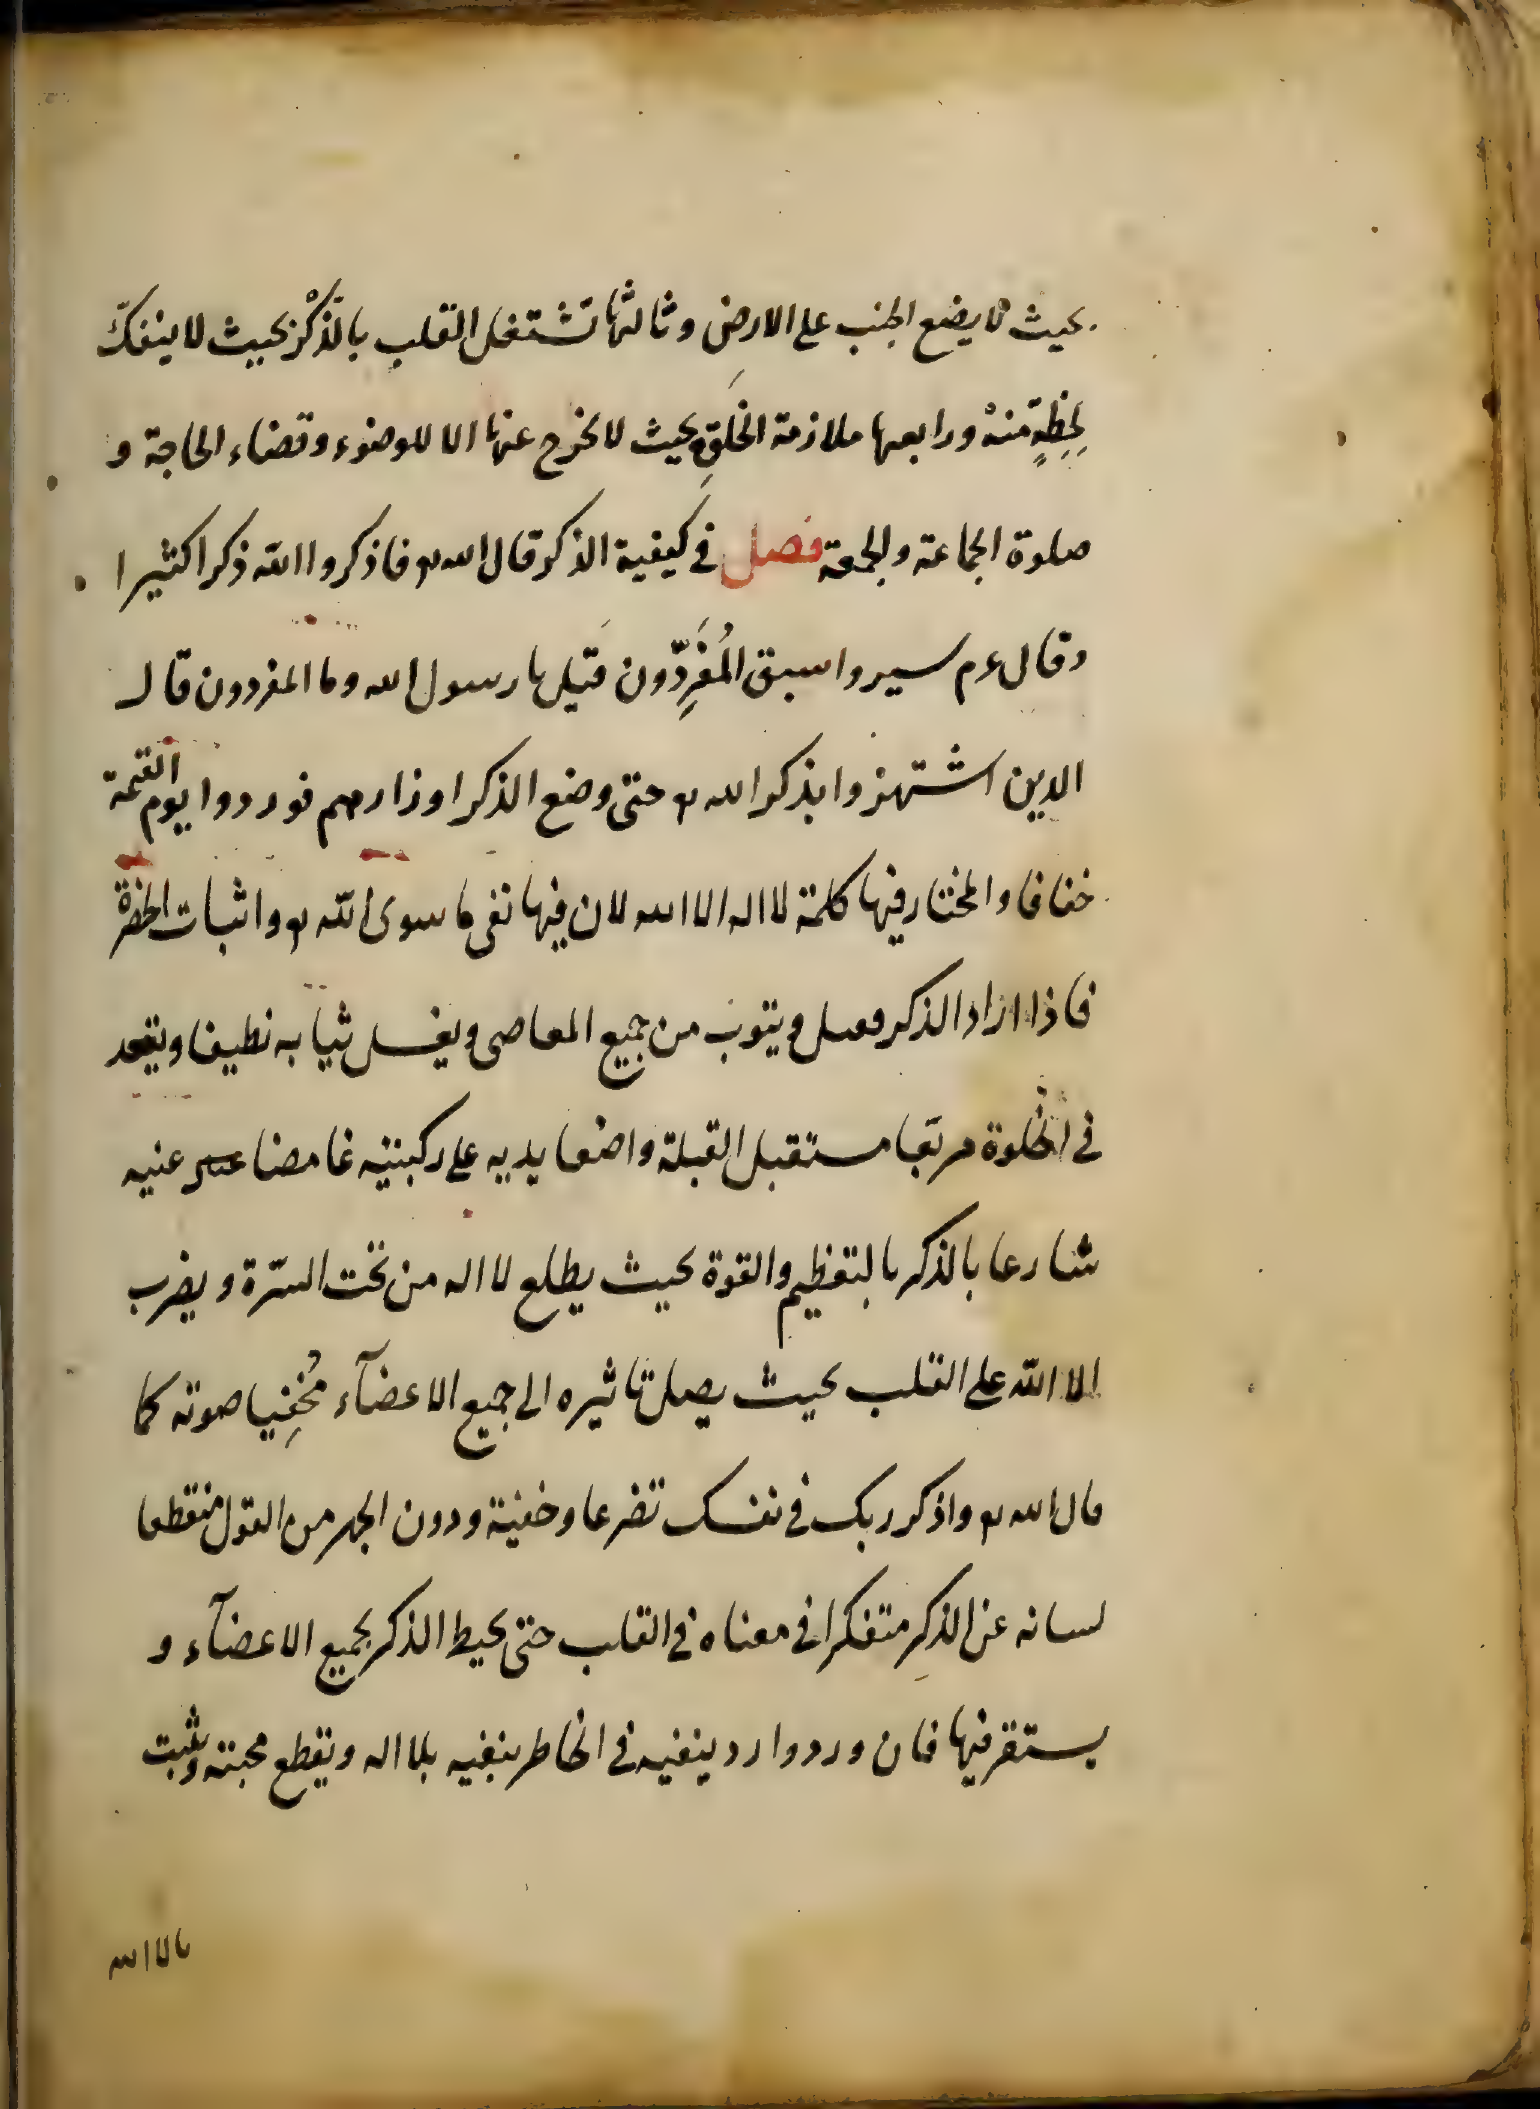 بحيث لا يضع الجنب على الارض وثالثها تشتغل القلب بالذّكْر بحيث لا ينفكّ
لحِظةٍ منهْ ورابعها ملازمة الخلَقِ بحيث لا يخرج عنها الا للوضوء وقضاء الحاجة و
صلوة الجماعة والجمعة فصل فى كيفية الذكر قال الله تع فاذكروا الله ذكرا كثيرا
وقال عم سيروا سبق المُفَرِدّون قيل يا رسول الله وما المفردون قال
الدين اشتهزوا بذكر الله تع حتى وضع الذكر اوزارهم فوردوا يوم القيمة
خفافا والمختار فيها كلمة لا اله الا الله لان فيها نفى ما سوى الله تع واثبات الحضرة
فاذا اراد الذكر ويتوب من جميع المعاصى ويغسل ثيابه نطيفا ويقعد
فى الخلوة مربّعا مستقبل القبلة واضعا يديه على ركبتيه غامضا عينيه
شارعا بالذكر بالتعظيم والقوة بحيث يطلع لا اله من تحت السرّة ويضرب
الا الله على القلب بحيث يصل تاثيره الى جميع الاعضآء مُخفِيا صوته كما
قال الله تع واذكر ربك فى نفسك تضرعا وخفية ودون الجهر من القول منقطعا
لسانه عن الذكر متفكرا فى معناه فى القلب حتى يحيط الذكر بجميع الاعضآء و
يستقر فيها فان ورد وارد ينفيه فى الخاطر ينفيه بلا اله ويقطع محبته ويثبت
بالا الله